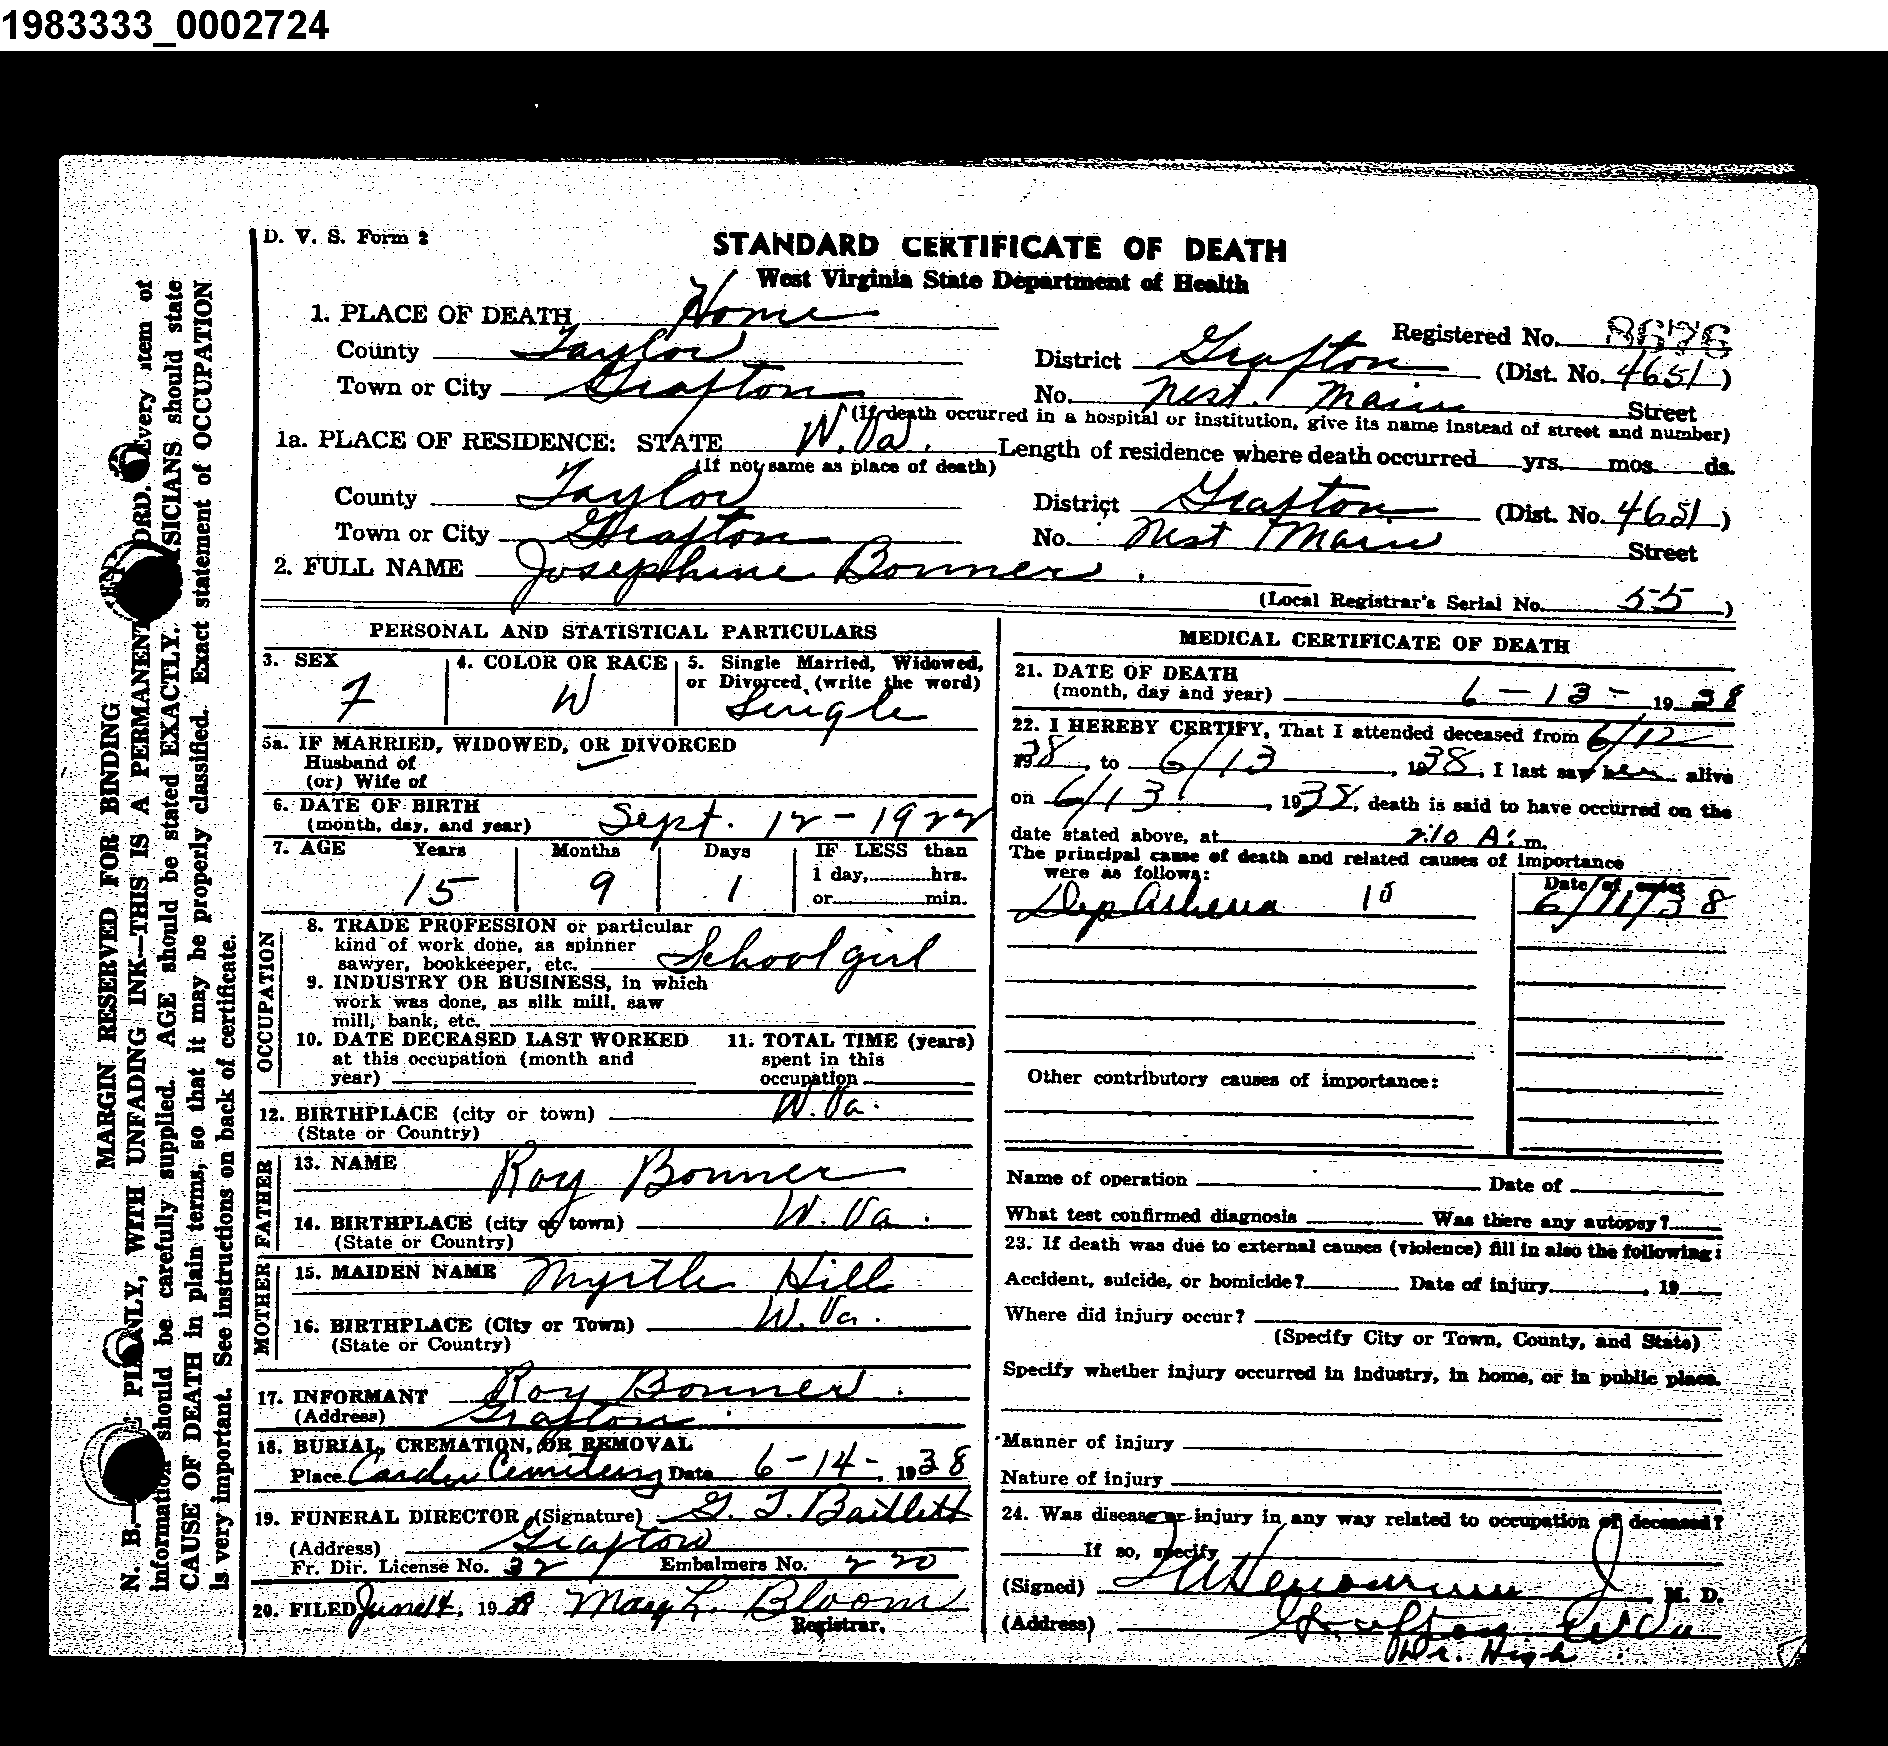 1983333_0002724
D. V. S. Form 2
STANDARD CERTIFICATE OF DEATH
West Virginia State Department of Health
1. PLACE OF DEATH Home
Registered No. 8676
County Taylor District Grafton (Dist. No. 4651)
Town or City Grafton No. West Main Street
(If death occurred in a hospital or institution, give its name instead of street and number)
1a. PLACE OF RESIDENCE: STATE W. Va. Length of residence where death occurred yrs. mos. ds.
(If not same as place of death)
County Taylor District Grafton (Dist. No. 4651)
Town or City Grafton No. West Main Street
2. FULL NAME Josephine Bonner.
(Local Registrar's Serial No. 55)
PERSONAL AND STATISTICAL PARTICULARS
3. SEX F
4. COLOR OR RACE W
5. Single Married, Widowed, or Divorced (write the word) Single
5a. IF MARRIED, WIDOWED, OR DIVORCED
Husband of
(or) Wife of
6. DATE OF BIRTH (month, day, and year) Sept. 12-1922
7. AGE Years 15 Months 9 Days 1 IF LESS than 1 day, hrs. or min.
OCCUPATION
8. TRADE PROFESSION or particular
kind of work done, as spinner
sawyer, bookkeeper, etc. School girl
9. INDUSTRY OR BUSINESS, in which
work was done, as silk mill, saw
mill, bank, etc.
10. DATE DECEASED LAST WORKED
at this occupation (month and
year)
11. TOTAL TIME (years)
spent in this
occupation
12. BIRTHPLACE (city or town) W. Va.
(State or Country)
FATHER
13. NAME Roy Bonner
14. BIRTHPLACE (city or town) W. Va.
(State or Country)
MOTHER
15. MAIDEN NAME Myrtle Hill
16. BIRTHPLACE (City or Town) W. Va.
(State or Country)
17. INFORMANT Roy Bonner.
(Address) Grafton
18. BURIAL, CREMATION, OR REMOVAL
Place Carder Cemetery Date 6-14-, 1938
19. FUNERAL DIRECTOR (Signature) G. T. Bartlett
(Address) Grafton
Fr. Dir. License No. 32 Embalmers No. 220
20. FILED June 14, 1938 May L. Bloom
Registrar.
MEDICAL CERTIFICATE OF DEATH
21. DATE OF DEATH
(month, day and year) 6-13- 1938
22. I HEREBY CERTIFY, That I attended deceased from 6/12
1938, to 6/13, 1938, I last saw her alive
on 6/13, 1938, death is said to have occurred on the
date stated above, at 2:10 A. m.
The principal cause of death and related causes of importance
were as follows: Date of onset
10 6/11/38
Other contributory causes of importance:
Name of operation Date of
What test confirmed diagnosis Was there any autopsy?
23. If death was due to external causes (violence) fill in also the following:
Accident, suicide, or homicide? Date of injury , 19
Where did injury occur?
(Specify City or Town, County, and State)
Specify whether injury occurred in industry, in home, or in public place.
Manner of injury
Nature of injury
24. Was disease or injury in any way related to occupation of deceased?
If so, specify
(Signed) M. D.
(Address) Grafton W Va
Dr. High
MARGIN RESERVED FOR BINDING
N. B.— PLAINLY, WITH UNFADING INK—THIS IS A PERMANENT RECORD. Every item of
information should be carefully supplied. AGE should be stated EXACTLY. PHYSICIANS should state
CAUSE OF DEATH in plain terms, so that it may be properly classified. Exact statement of OCCUPATION
is very important. See instructions on back of certificate.